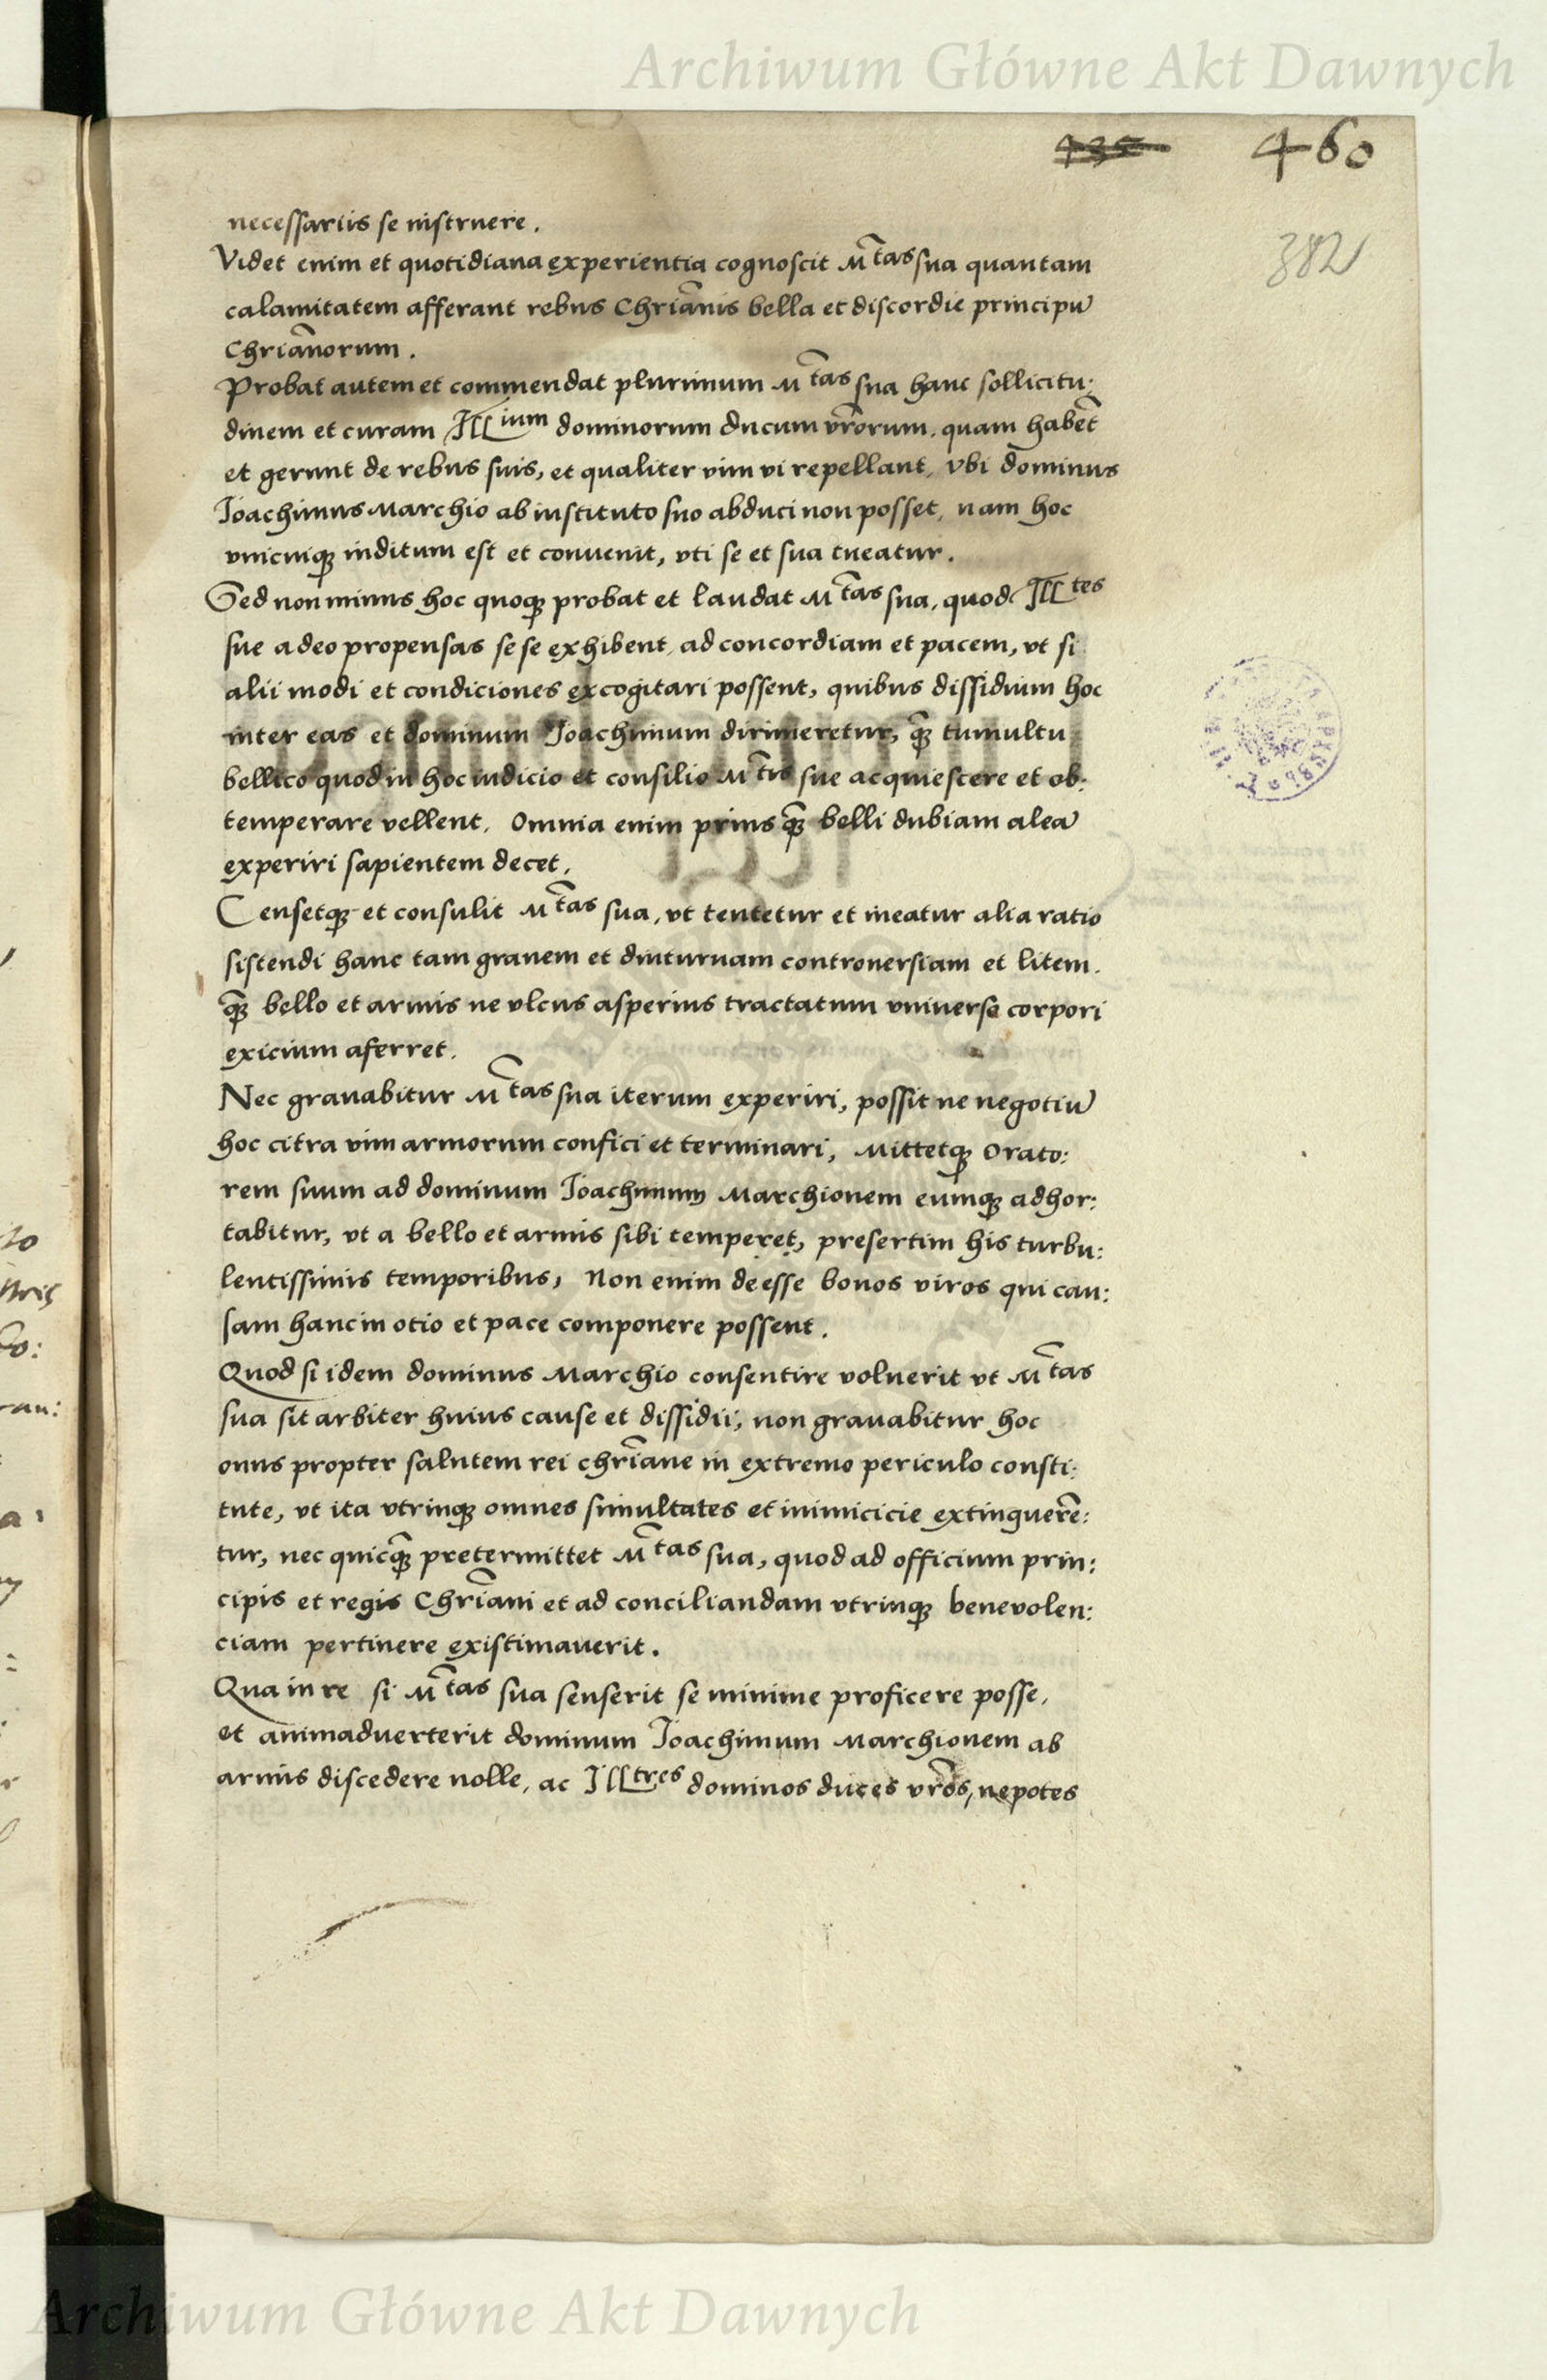 Archiwum Główne Akt Dawnych
460
382
necessariis se instruere.
Videt enim et quotidiana experientia cognoscit M^tas sua quantam
calamitatem afferant rebus Chr̄ianis bella et discordie principū
Chr̄ianorum.
Probat autem et commendat plurimum M^tas sua hanc sollicitu:
dinem et curam Ill^ium dominorum ducum vr̄orum, quam habēt
et gerunt de rebus suis, et qualiter vim vi repellant, vbi dominus
Ioachimus Marchio ab instituto suo abduci non posset, nam hoc
vnicuiqꝫ inditum est et convenit, vti se et sua tueatur.
Sed non minus hoc quoqꝫ probat et laudat M^tas sua, quod Ill^tes
sue adeo propensas sese exhibent, ad concordiam et pacem, vt si
alii modi et condiciones excogitari possent, quibus dissidium hoc
inter eas et dominum Ioachimum dirimeretur, qꝫ̄ tumultu
bellico quod in hoc iudicio et consilio M^tis sue acquiescere et ob:
temperare vellent. Omnia enim prius qꝫ̄ belli dubiam aleā
experiri sapientem decet.
Censetqꝫ et consulit M^tas sua, vt tentetur et ineatur alia ratio
sistendi hanc tam gravem et diuturnam controuersiam et litem.
qꝫ̄ bello et armis ne vlcus asperius tractatum vniverse corpori
exicium aferret.
Nec gravabitur M^tas sua iterum experiri, possit ne negotiū
hoc citra vim armorum confici et terminari, Mittetqꝫ Orato:
rem suum ad dominum Ioachimum Marchionem eumqꝫ adhor:
tabitur, vt a bello et armis sibi temperet, presertim his turbu:
lentissimis temporibus, Non enim deesse bonos viros qui cau:
sam hanc in otio et pace componere possent.
Quod si idem dominus Marchio consentire voluerit vt M^tas
sua sit arbiter huius cause et dissidii, non gravabitur hoc
onus propter salutem rei chr̄iane in extremo periculo consti:
tute, vt ita vtrinqꝫ omnes simultates et inimicicie extinguerē:
tur, nec quicqꝫ̄ pretermittet M^tas sua, quod ad officium prin:
cipis et regis Chr̄iani et ad conciliandam vtrinqꝫ benevolen:
ciam pertinere existimaverit.
Qua in re si M^tas sua senserit se minime proficere posse,
et animadverterit dominum Ioachimum Marchionem ab
armis discedere nolle, ac Ill^tres dominos duces vr̄os, nepotes
Archiwum Główne Akt Dawnych